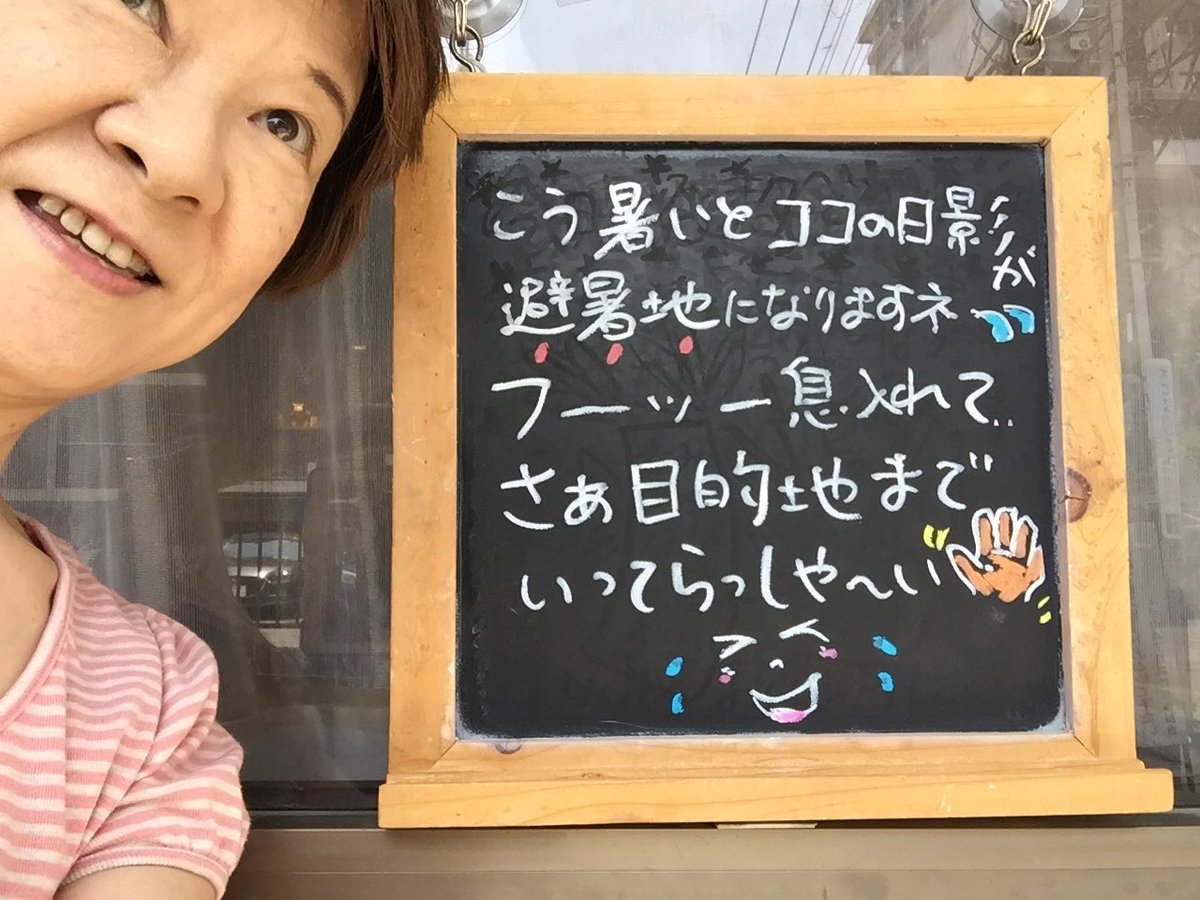 こう暑いとココの日影が
避暑地になりますネ
フーッ一息入れて..
さぁ目的地まで
いってらっしゃ〜い